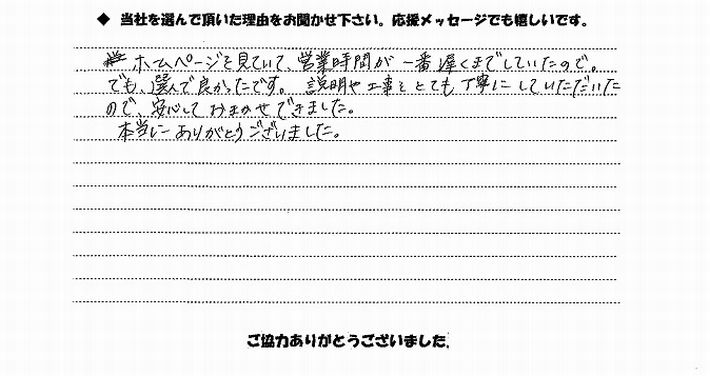 ◆ 当社を選んで頂いた理由をお聞かせ下さい。応援メッセージでも嬉しいです。
ホームページを見ていて、営業時間が一番遅くまでしていたので。
でも、選んで良かったです。説明や工事もとても丁寧にしていただいた
ので、安心しておまかせできました。
本当にありがとうございました。
ご協力ありがとうございました。